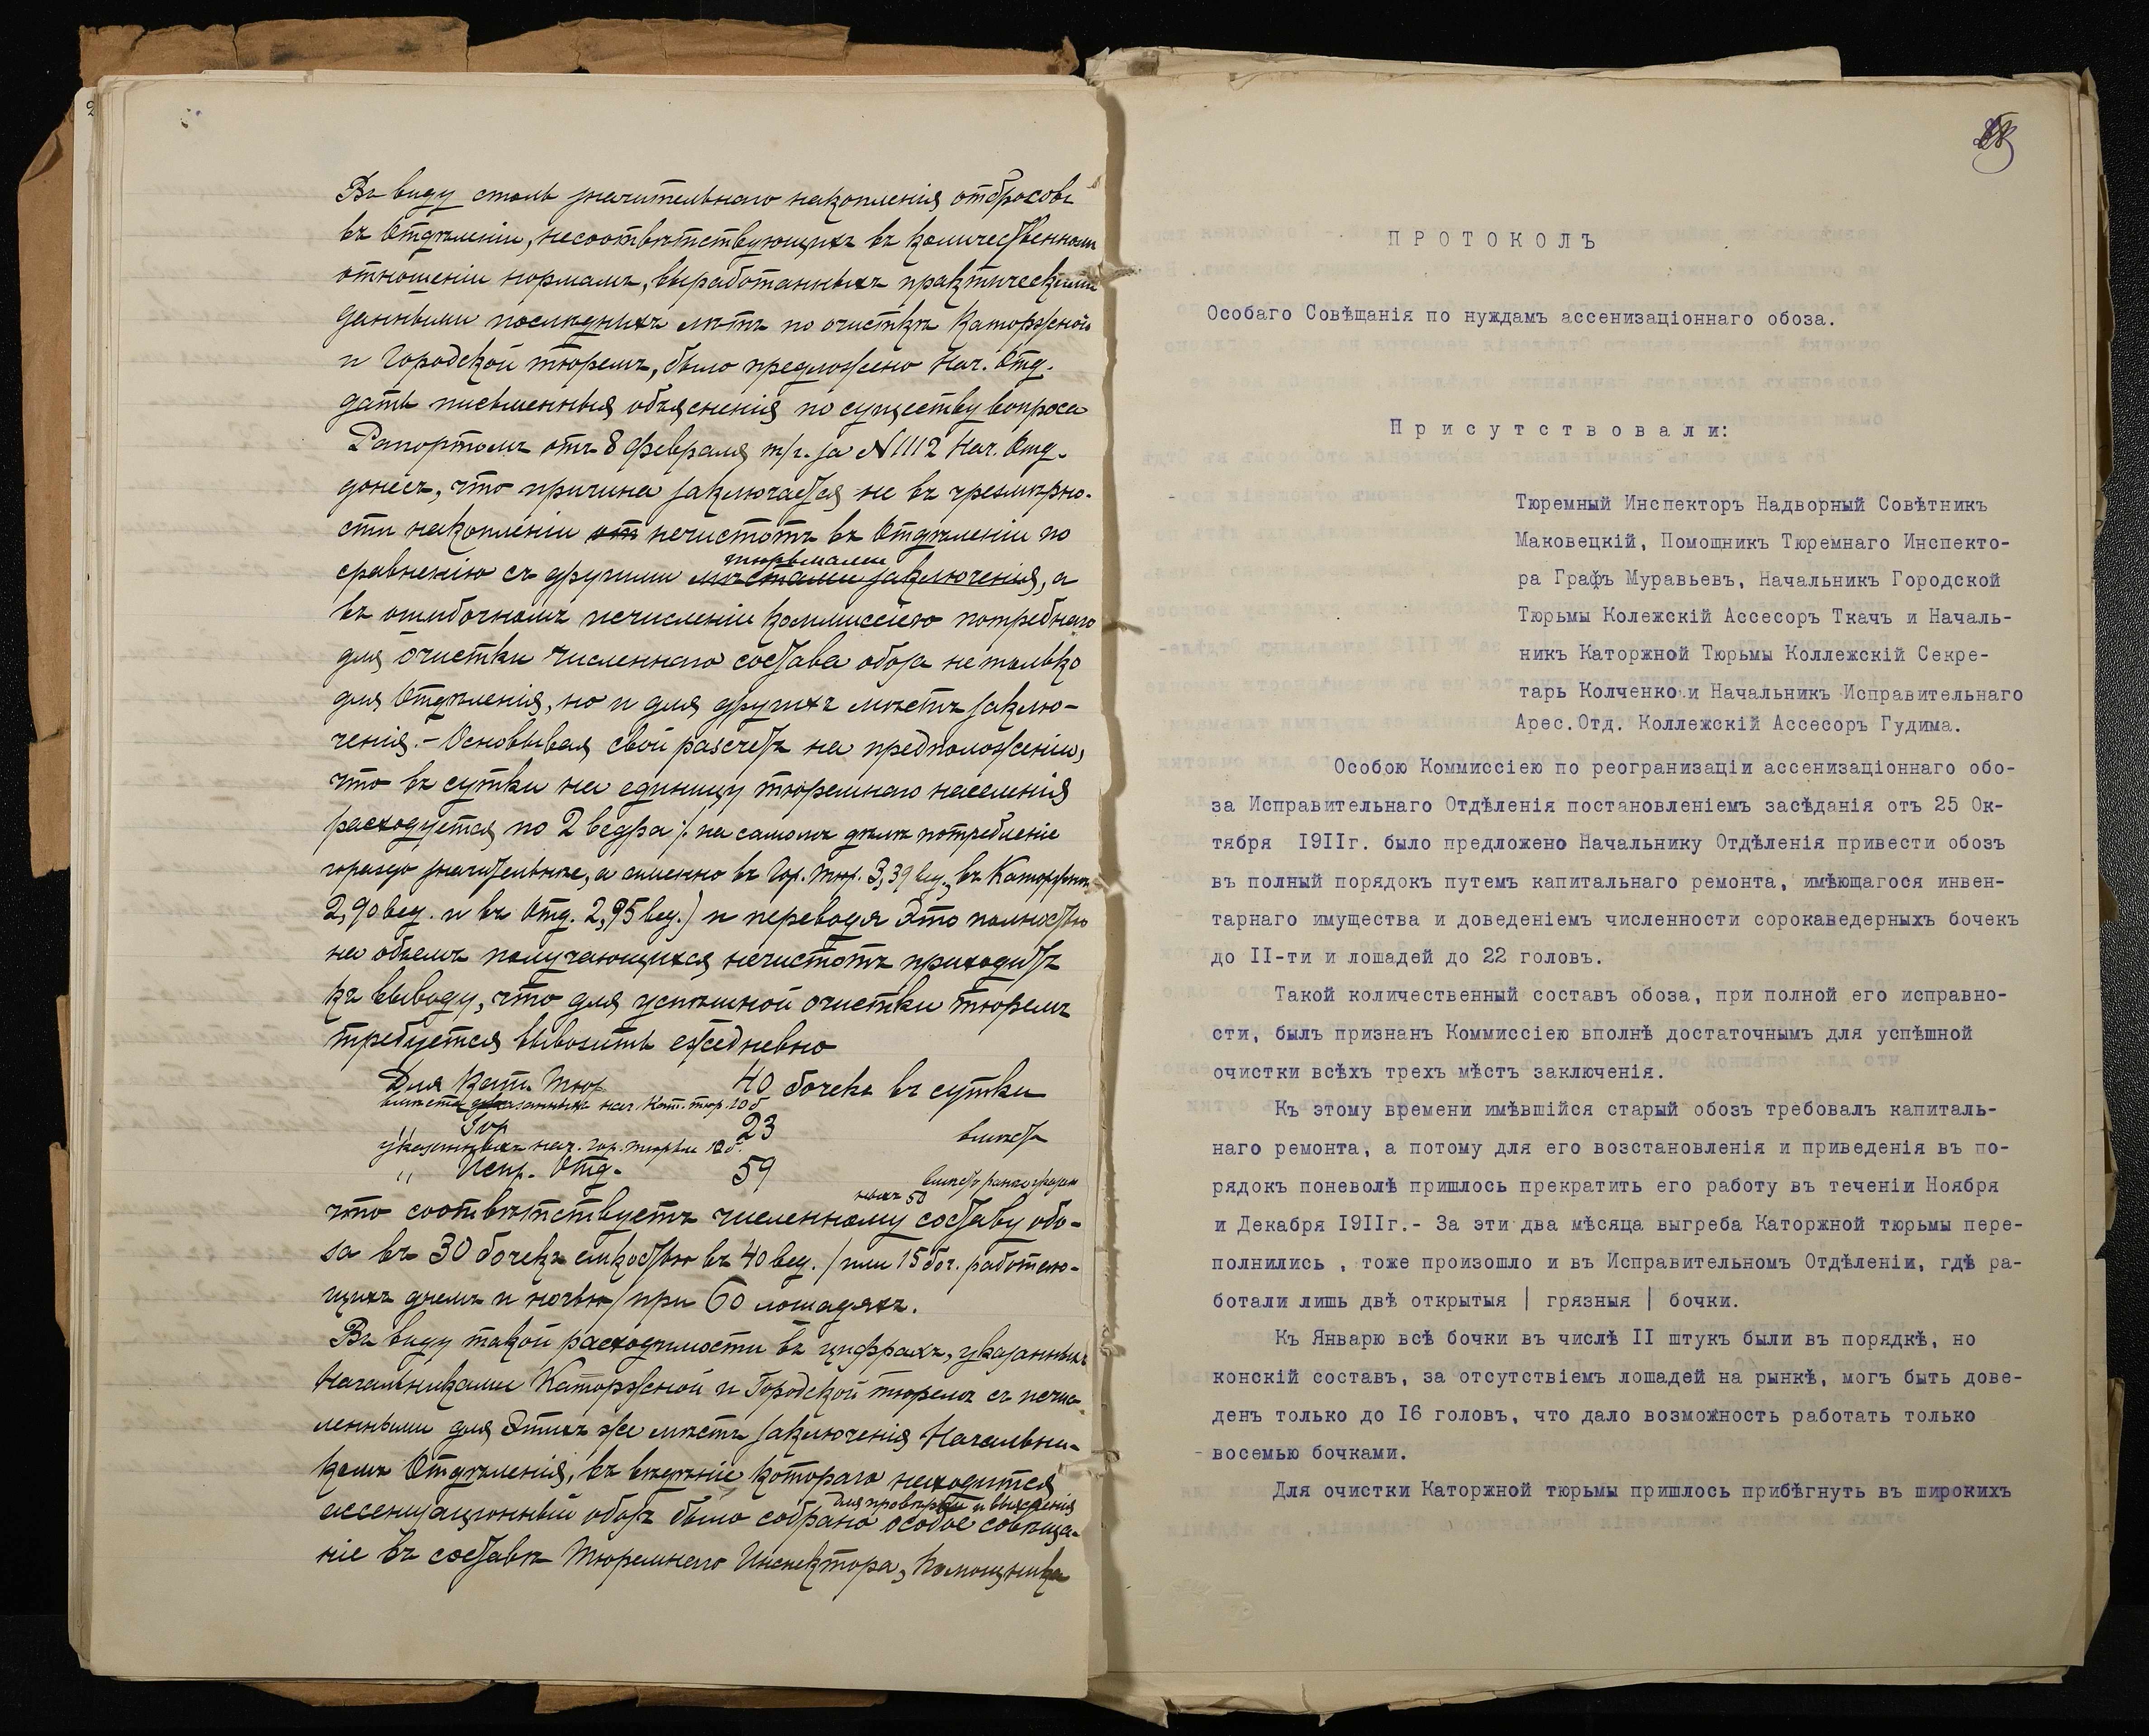 Въ виду столь значительнаго накопленія отбросовъ
въ Отдѣленіи, несоотвѣтствующихъ въ количественномъ
отношеніи нормамъ, выработаннымъ практическими
данными послѣднихъ лѣтъ по очисткѣ Каторжной
и Городской тюремъ, было предложено Нач. Отд.
дать письменныя объясненія по существу вопроса
Рапортомъ отъ 8 февраля т/г. за № 1112 Нач. Отд.
донесъ, что причина заключается не въ чрезмѣрно-
сти накопленіи от нечистотъ въ Отдѣленіи по
тюрьмами
сравненію съ другими мѣстами заключенія, а
въ ошибочномъ исчисленіи коммиссіею потребнаго
для очистки численнаго состава обоза не только
для Отдѣленія, но и для другихъ мѣстъ заклю-
ченія.- Основывая свой разсчетъ на предположеніи,
что въ сутки на единицу тюремнаго населенія
расходуется по 2 ведра /. на самомъ дѣлѣ потребленіе
гораздо значительнѣе, а именно въ Гор. Тюр. 3,39 вед., въ Каторжной
2,90 вед. и въ Отд. 2,95 вед.) и переводя это полностью
на объемъ получающихся нечистотъ приходитъ
къ выводу, что для успѣшной очистки тюремъ
требуется вывозить ежедневно
Для Кат. Тюр 40 бочекъ въ сутки
вмѣсто указанныхъ нач. Кат. тюр. 20 б
" Гор 23 вмѣсто
указанныхъ нач. Гор. тюрьмы 12 б.
" Испр. Отд. 59 вмѣсто
ныхъ 50
что соотвѣтствуетъ численному составу обо-
за въ 30 бочекъ емкостью въ 40 вед. / или 15 боч. работаю-
щихъ днемъ и ночью / при 60 лошадяхъ.
Въ виду такой расходимости въ цифрахъ, указанныхъ
Начальниками Каторжной и Городской тюремъ съ исчис-
ленными для этихъ же мѣстъ заключенія Начальни-
комъ Отдѣленія, въ вѣдѣніе котораго находится
для провѣрки и выясненія
ассенизаціонный обозъ было собрано особое совѣща-
ніе въ составѣ Тюремнаго Инспектора, Помощника
ПРОТОКОЛЪ
Особаго Совѣщанія по нуждамъ ассенизаціоннаго обоза.
Присутствовали:
Тюремный Инспекторъ Надворный Совѣтникъ
Маковецкій, Помощникъ Тюремнаго Инспекто-
ра Графъ Муравьевъ, Начальникъ Городской
Тюрьмы Колежскій Ассесоръ Ткачъ и Началь-
никъ Каторжной Тюрьмы Коллежскій Секре-
тарь Колченко и Начальникъ Исправительнаго
Арес.Отд. Коллежскій Ассесоръ Гудима.
Особою Коммиссіею по реогранизаціи ассенизаціоннаго обо-
за Исправительнаго Отдѣленія постановленіемъ засѣданія отъ 25 Ок-
тября I9IIг. было предложено Начальнику Отдѣленія привести обозъ
въ полный порядокъ путемъ капитальнаго ремонта, имѣющагося инвен-
тарнаго имущества и доведеніемъ численности сорокаведерныхъ бочекъ
до II-ти и лошадей до 22 головъ.
Такой количественный составъ обоза, при полной его исправно-
сти, былъ признанъ Коммиссіею вполнѣ достаточнымъ для успѣшной
очистки всѣхъ трехъ мѣстъ заключенія.
Къ этому времени имѣвшійся старый обозъ требовалъ капиталь-
наго ремонта, а потому для его возстановленія и приведенія въ по-
рядокъ поневолѣ пришлось прекратить его работу въ теченіи Ноября
и Декабря I9IIг.- За эти два мѣсяца выгреба Каторжной тюрьмы пере-
полнились , тоже произошло и въ Исправительномъ Отдѣленіи, гдѣ ра-
ботали лишь двѣ открытыя | грязныя | бочки.
Къ Январю всѣ бочки въ числѣ II штукъ были въ порядкѣ, но
конскій составъ, за отсутствіемъ лошадей на рынкѣ, могъ быть дове-
денъ только до I6 головъ, что дало возможность работать только
восемью бочками.
Для очистки Каторжной тюрьмы пришлось прибѣгнуть въ широкихъ